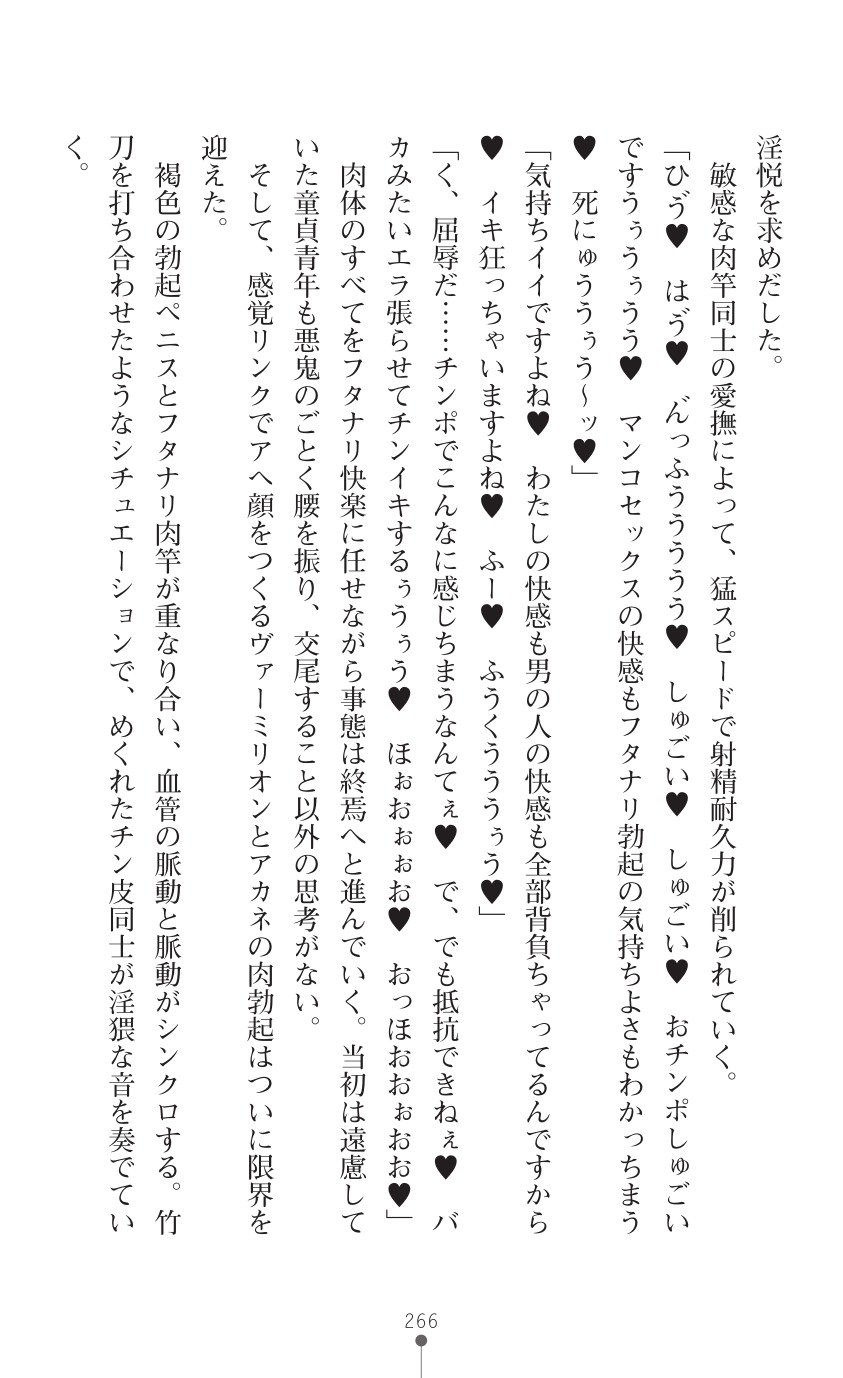 淫悦を求めだした。
　敏感な肉竿同士の愛撫によって、猛スピードで射精耐久力が削られていく。
「ひゔ♥　はゔ♥　ん゙っふうううう♥　しゅごい♥　しゅごい♥　おチンポしゅごい
ですうぅうぅうう♥　マンコセックスの快感もフタナリ勃起の気持ちよさもわかっちまう
♥　死にゅううぅう～ッ♥」
「気持ちイイですよね♥　わたしの快感も男の人の快感も全部背負ちゃってるんですから
♥　イキ狂っちゃいますよね♥　ふー♥　ふうくうううぅう♥」
「く、屈辱だ……チンポでこんなに感じちまうなんてぇ♥　で、でも抵抗できねぇ♥　バ
カみたいエラ張らせてチンイキするぅうぅう♥　ほぉおぉぉお♥　おっほおおぉおお♥」
　肉体のすべてをフタナリ快楽に任せながら事態は終焉へと進んでいく。当初は遠慮して
いた童貞青年も悪鬼のごとく腰を振り、交尾すること以外の思考がない。
　そして、感覚リンクでアヘ顔をつくるヴァーミリオンとアカネの肉勃起はついに限界を
迎えた。
　褐色の勃起ペニスとフタナリ肉竿が重なり合い、血管の脈動と脈動がシンクロする。竹
刀を打ち合わせたようなシチュエーションで、めくれたチン皮同士が淫猥な音を奏でてい
く。
266